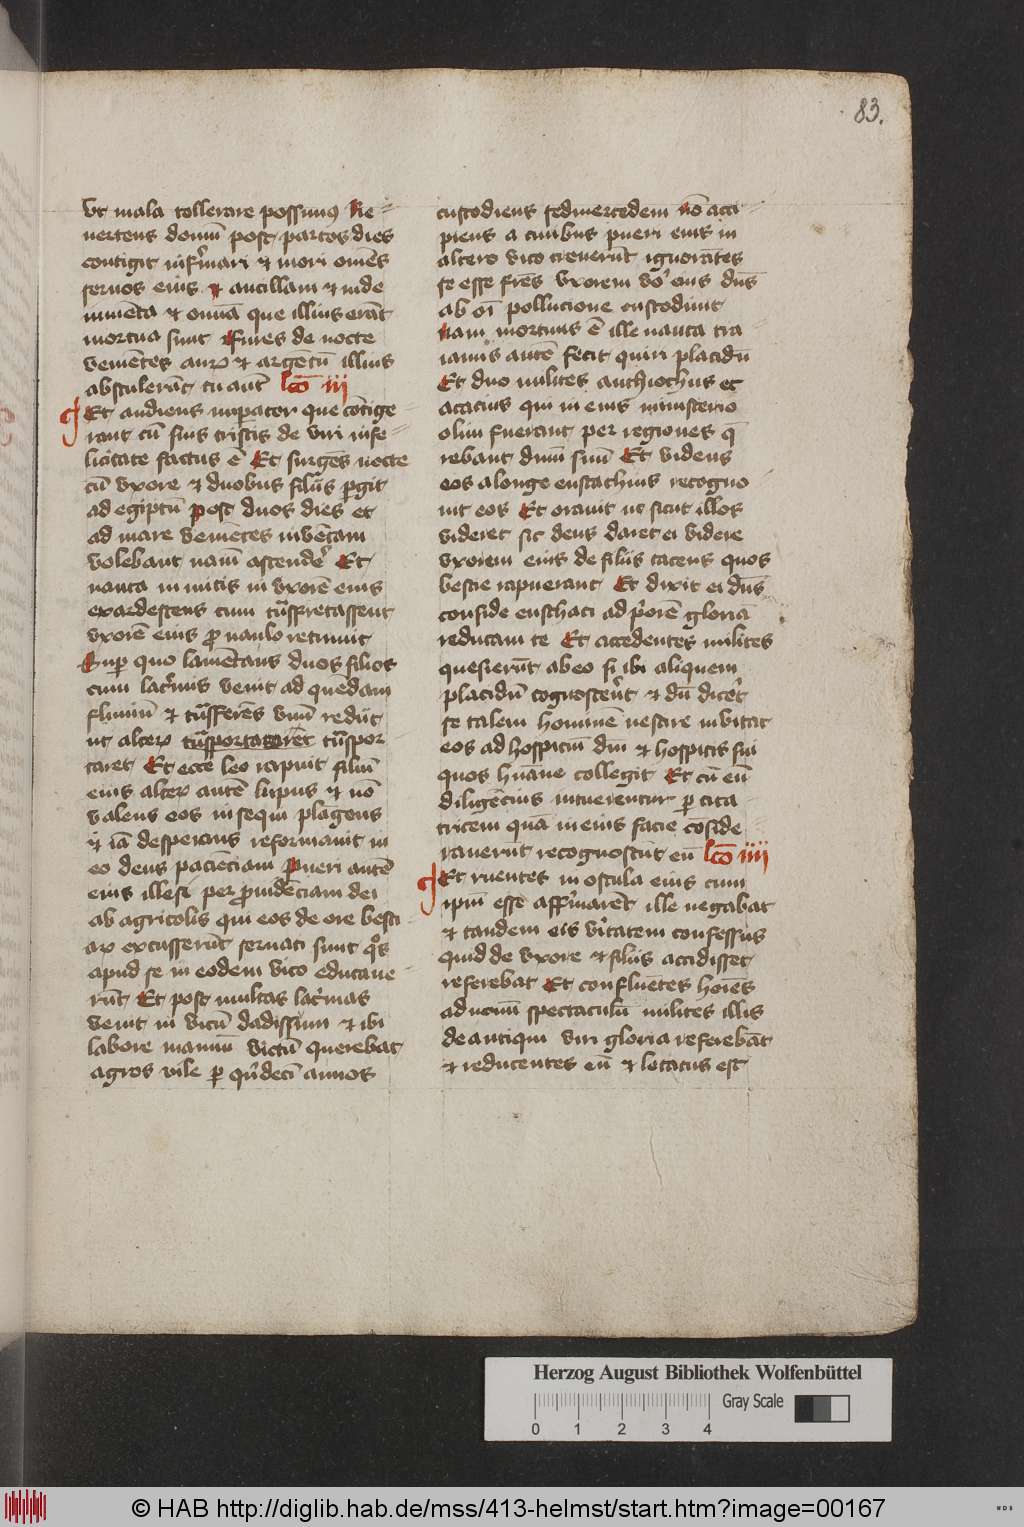 83.
Vt mala tollerare possimus Re-
uertens domū post partos dies
contigit infirmari et mori om̄es
seruos eius et ancillam et inde
iumēta et om̄ia que illius erāt
mortua sunt et fures de nocte
veniētes aurū et argētū illius
abstulerūt tu autē lc̄o iii
Et audiens impator que cōtige-
rant cū suis tristis de viri infe-
licitate factus ē Et surgēs nocte
cū vxore et duobus filiis pgit
ad egiptū post duos dies et
ad mare veniētes inuētam
volebant nauī ascendere Et
nauta inmitis in vxorē eius
exardescens cum trāsfretassent
vxorē eius pro naulo retinuit
Sup quo lamētans duos filios
cum lacrimis venit ad quēdam
fluuiū et trāsferēs vnū rediit
ut alterū trāsportar
caret Et ecce leo rapuit filiū
eius alterū autē lupus et nō
valens eos insequi plāgens
et iā desperans reformauit in
eo deus pacienciam Pueri autē
eius illesi per prouidēciam dei
ab agricolis qui eos de ore besti
arū excusserūt seruati sunt quos
apud se in eodem vico educaue-
rūt Et post multas lacrimas
venit in vicū dadissum et ibi
labore manuū victū querebat
agros vile p quīdecī annos
custodiens sed mercedem nō acci-
piens a ciuibus pueri eius in
altero vico creuerūt ignorātes
se esse frēs vxorem vo eius dn̄s
ab oī pollucione custodiuit
nam mortuus ē ille nauta tra
ianus autē fecit quiri placidū
Et duo milites anthiochus et
acacius qui in eius ministerio
olim fuerant per regiones q̄
rebant dn̄m suū Et videns
eos a longe eustachius recogno
uit eos Et orauit ut sicut illos
videret sic deus daret ei videre
vxorem eius de filiis tacens quos
bestie rapuerant Et dixit ei dn̄s
confide eustachi ad priorē gloriā
reducam te Et accedentes milites
quesierūt ab eo si ibi aliquem
placidū cognosceret et dū diceret
se talem hominē nescire inuitat
eos ad hospiciū dn̄i et hospitis sui
quos humane collegit Et cū eū
diligēcius intuerentur p cica
tricem quā in eius facie cōside
rauerūt recognoscūt eū lc̄o iiii
Et ruentes in oscula eius cum
ipm̄ esse affirmarēt ille negabat
et tandem eis veritatem confessus
quid de vxore et filiis accidisset
referebat Et confluētes hoīes
ad nouū spectaculū milites illis
de antiqui viri gloria referebāt
et reducentes eū et letatus est
Herzog August Bibliothek Wolfenbüttel
Gray Scale
0 1 2 3 4
© HAB http://diglib.hab.de/mss/413-helmst/start.htm?image=00167
WDB